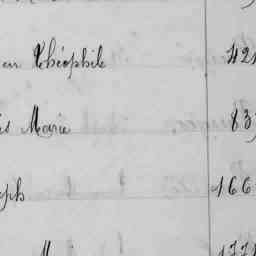 en Théophile 421
is Marie 83
eph 166
177